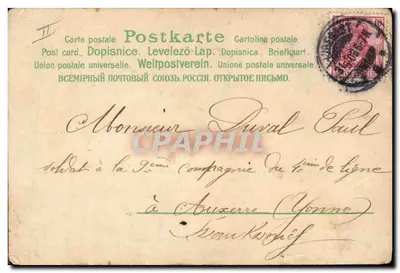 II
Carte postale Postkarte Cartolina postale
Post card. Dopisnice. Levelező-Lap. Dopisnica. Briefkart.
Union postale universelle. Weltpostverein. Unione postale universale
ВСЕМІРНЫЙ ПОЧТОВЫЙ СОЮЗЪ. РОССІЯ. ОТКРЫТОЕ ПИСЬМО.
Monsieur Duval Paul
soldat à la 9ème compagnie du 4ème de ligne
à Auxerre (Yonne)
PRECIGRAPH.COM